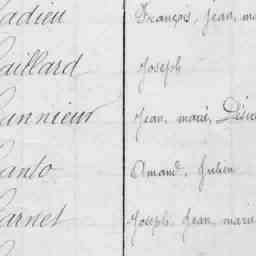 adieu François, Jean, ma
aillard Joseph
annieur Jean, marie, Désiré
anto Amand, Julien
arnet Joseph, Jean, marie